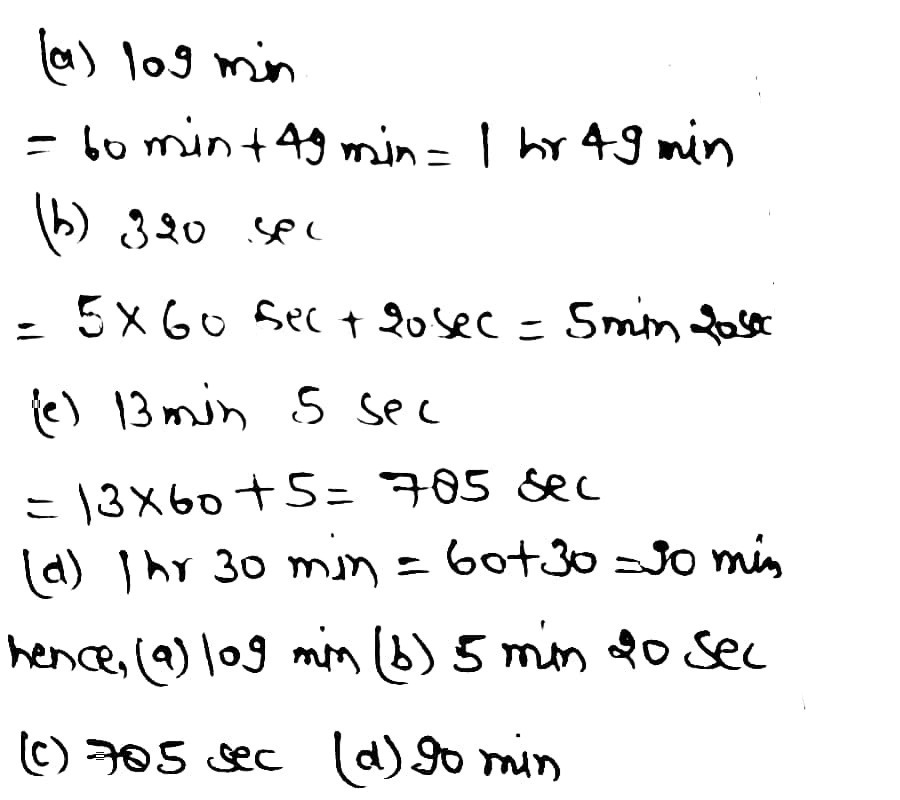 (a) 109 min
= 60 min + 49 min = 1 hr 49 min
(b) 320 sec
= 5 × 60 sec + 20 sec = 5 min 20 sec
(c) 13 min 5 sec
= 13 × 60 + 5 = 785 sec
(d) 1 hr 30 min = 60 + 30 = 90 min
hence, (a) 109 min (b) 5 min 20 sec
(c) 785 sec (d) 90 min